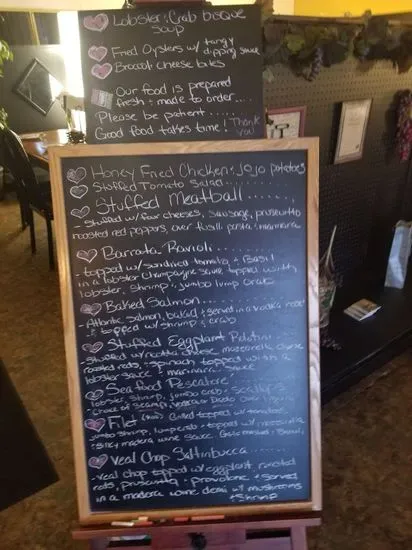 Lobster & Crab bisque
Soup
Fried Oysters w/ tangy
dipping sauce
Broccoli cheese bites
Our food is prepared
fresh & made to order...
Please be patient......
Good food takes time! Thank
you
Honey Fried Chicken & JoJo potatoes
Stuffed Tomato Salad........
Stuffed Meatball......
- Stuffed w/ four cheeses, sausage, prosciutto
roasted red peppers, over fusilli pasta & marinara
Barrata Ravioli.........
- topped w/ sundried tomato, & Basil
in a lobster Champagne sauce topped with
lobster, shrimp & jumbo lump crab
Baked Salmon..........
- Atlantic salmon, baked & served in a vodka
& topped w/ shrimp & crab
Stuffed Eggplant
Stuffed w/ ricotta cheese, mozzarella,
roasted reds, spinach topped with a
lobster sauce & marinara sauce
Seafood Pescatore
lobster, shrimp, jumbo crab & scallops
choice of scampi,
Filet Grilled topped w/ tomatoes,
jumbo shrimp, topped w/ mozzarella
madera wine sauce
Veal Chop Saltinbucca
- veal chop topped w/ eggplant, roasted
reds, prosciutto & provolone & served
in a madera wine demi w/ mushrooms
& Shrimp